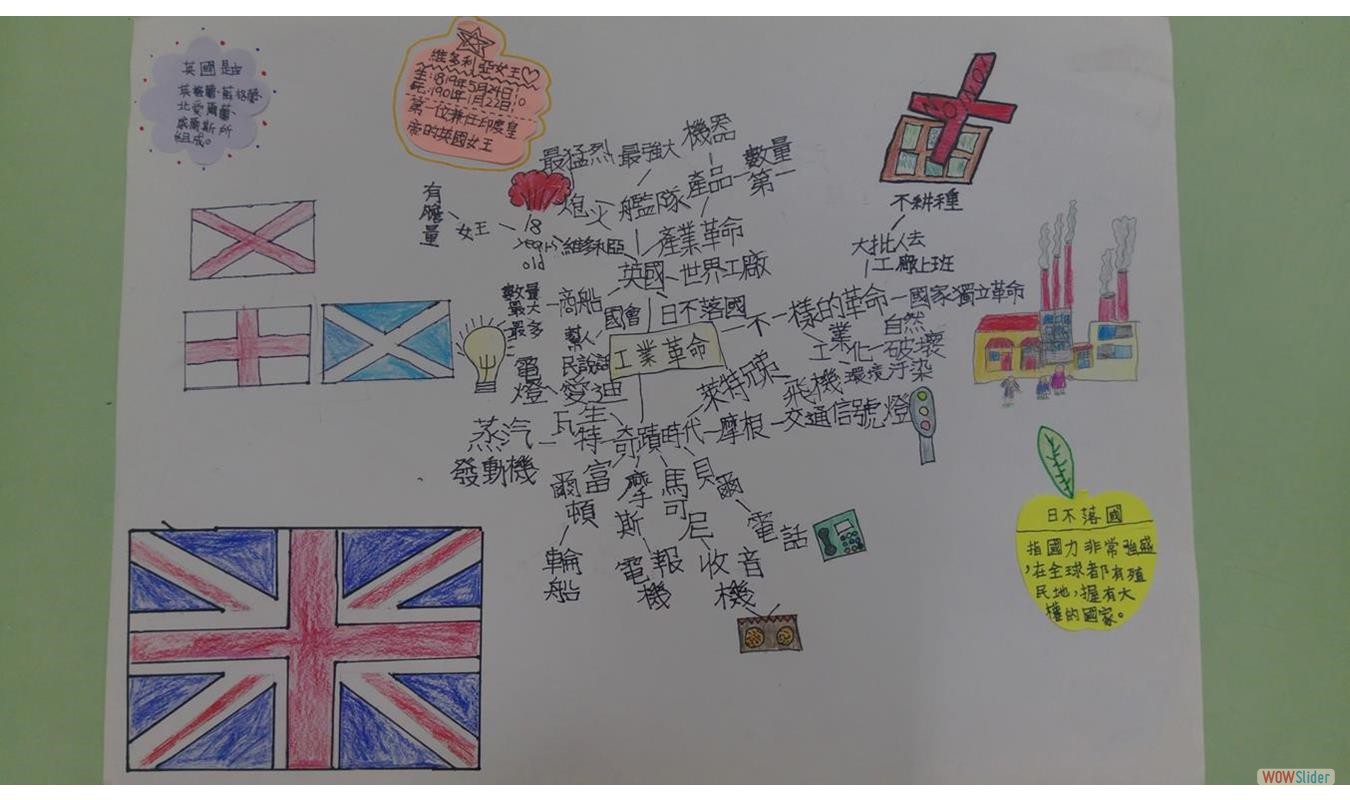 英國是由
英格蘭、蘇格蘭、
北愛爾蘭、
威爾斯所
組成。
維多利亞女王
生:1819年5月24日!。
死:1901年1月22日;
第一位兼任印度皇
帝的英國女王
最猛烈
最強大
機器
數量
第一
產品
艦隊
炮火
有膽量
女王
18
years
old
維多利亞
產業革命
英國
世界工廠
數量
最大
最多
商船
國會
日不落國
幫人
民說話
工業革命
不一樣的革命
國家獨立革命
NO
不耕種
大批人去
工廠上班
工業化
自然
破壞
環境汙染
萊特兄弟
飛機
電燈
愛迪生
蒸汽
發動機
瓦特
奇蹟時代
摩根
交通信號燈
富爾頓
輪船
摩斯
電報機
馬可尼
收音機
貝爾
電話
日不落國
指國力非常強盛
,在全球都有殖
民地,握有大
權的國家。
WOWSlider